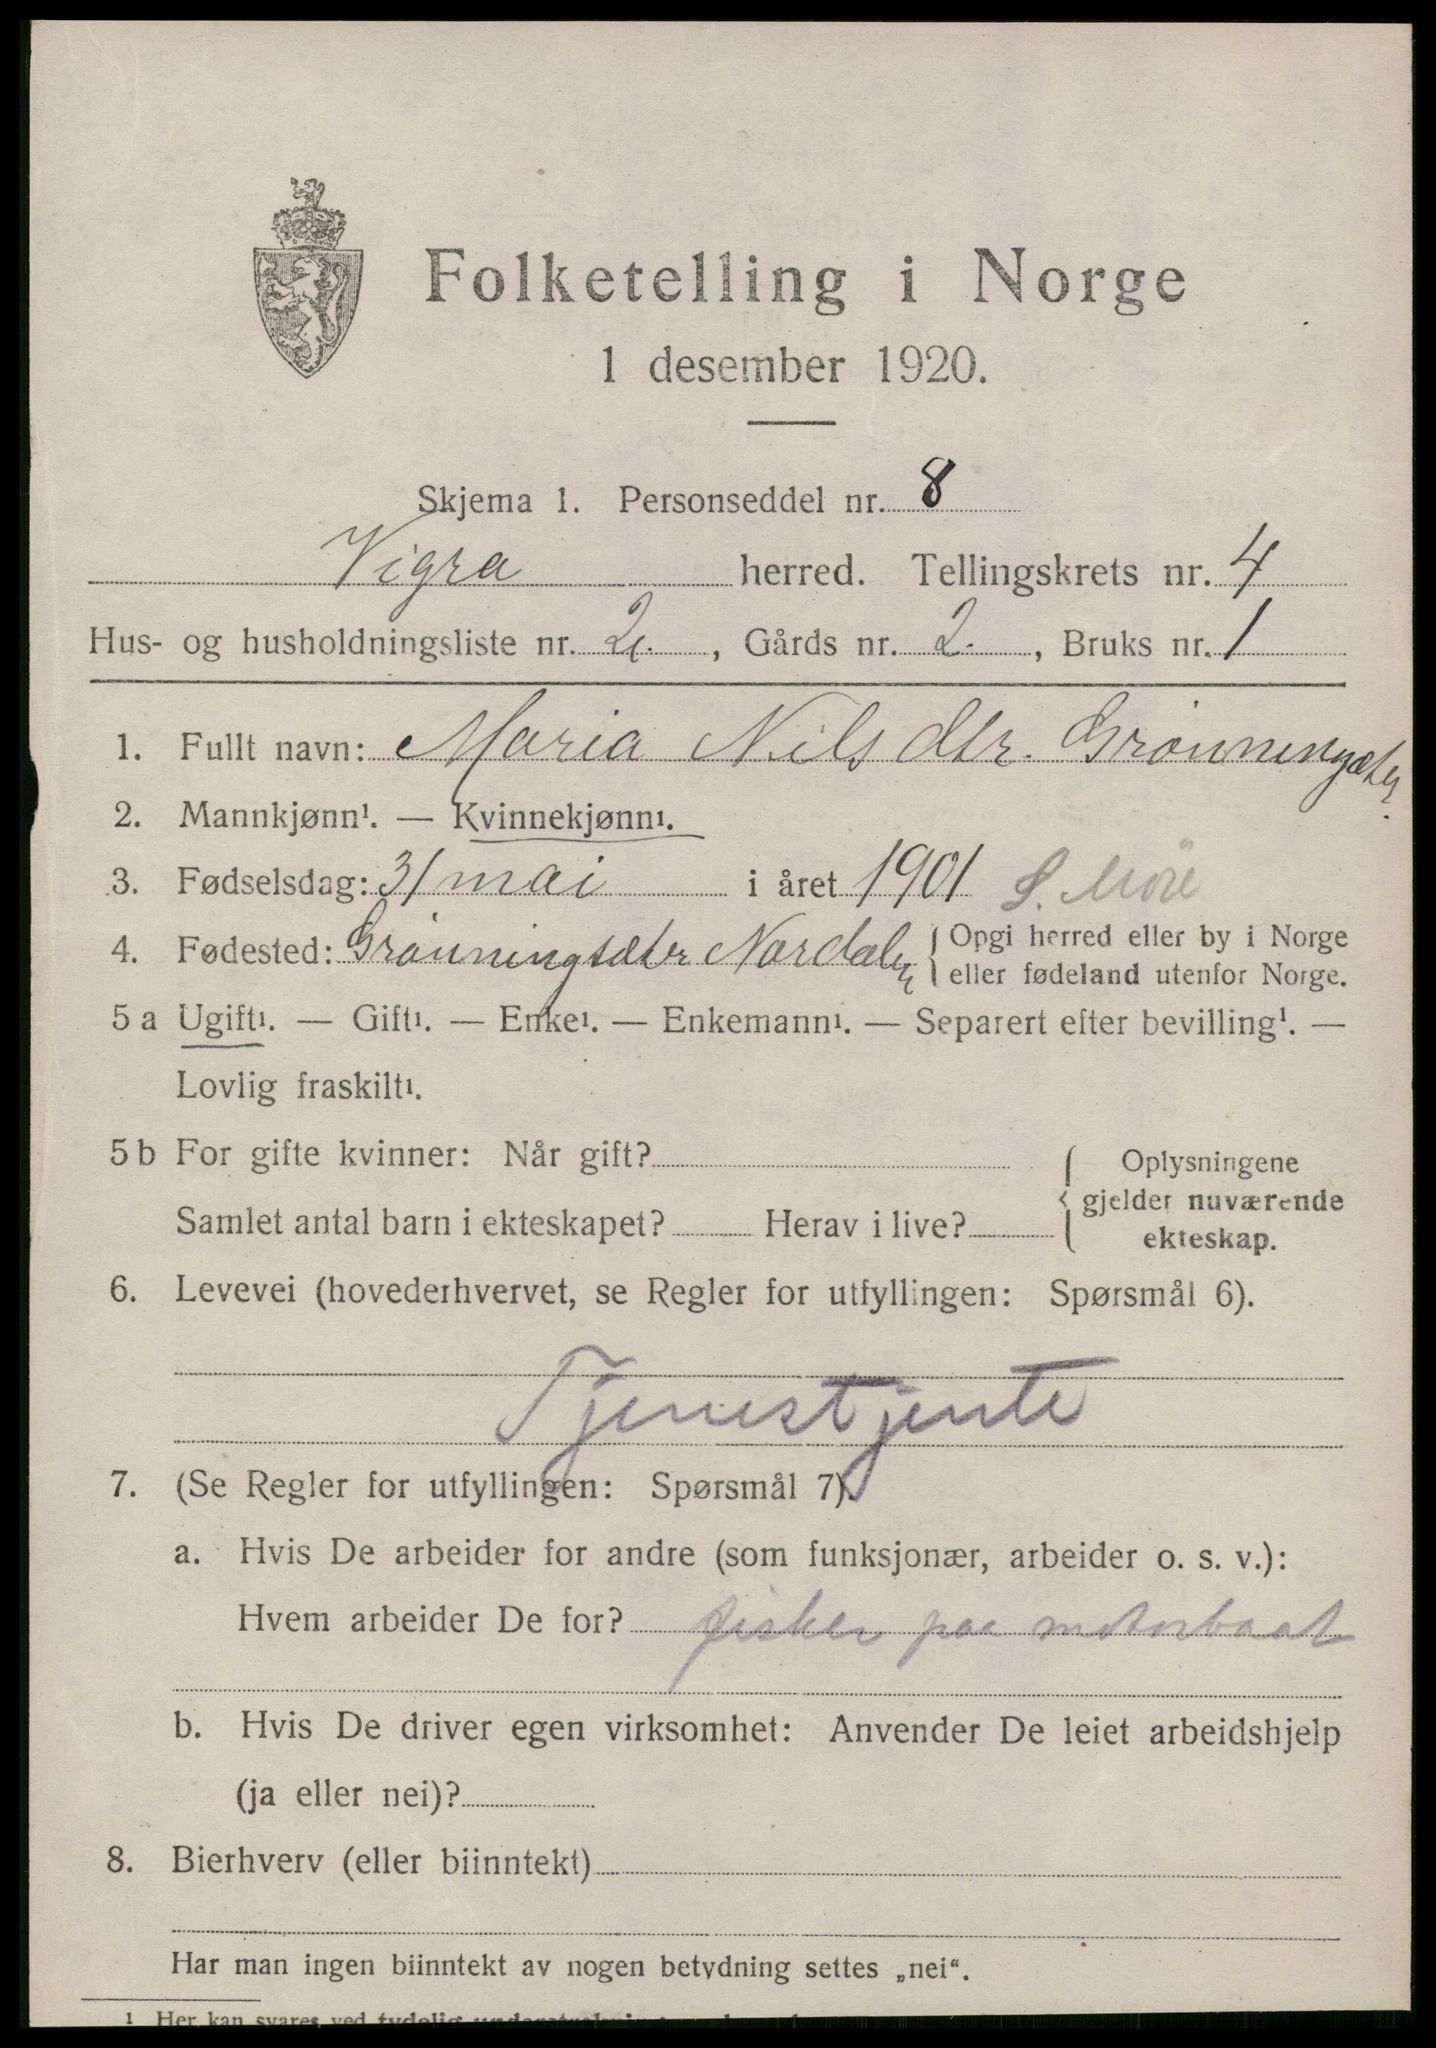 Folketelling i Norge
1 desember 1920.
Skjema 1. Personseddel nr. 8
Vigra herred. Tellingskrets nr. 4
Hus- og husholdningsliste nr. 2. , Gårds nr. 2. , Bruks nr. 1
1. Fullt navn: Maria Nilsdtr. Grönningsæter
2. Mannkjønn¹. — Kvinnekjønn¹.
3. Fødselsdag: 31 mai i året 1901 S. Möre
4. Fødested: Grönningsæter Nordalen { Opgi herred eller by i Norge
eller fødeland utenfor Norge.
5 a Ugift¹. — Gift¹. — Enke¹. — Enkemann¹. — Separert efter bevilling¹. —
Lovlig fraskilt¹.
5 b For gifte kvinner: Når gift? { Oplysningene
gjelder nuværende
Samlet antal barn i ekteskapet? Herav i live?
ekteskap.
6. Levevei (hovederhvervet, se Regler for utfyllingen: Spørsmål 6).
Tjenestjente
7. (Se Regler for utfyllingen: Spørsmål 7).
a. Hvis De arbeider for andre (som funksjonær, arbeider o. s. v.):
Hvem arbeider De for? fisker paa motorbaat
b. Hvis De driver egen virksomhet: Anvender De leiet arbeidshjelp
(ja eller nei)?
8. Bierhverv (eller biinntekt)
Har man ingen biinntekt av nogen betydning settes „nei“.
¹ Her kan svares ved tydelig